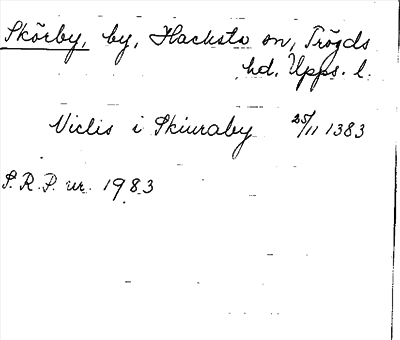 Skörby, by, Hacksta sn, Trögds
hd, Upps. l.
Niclis i Skiuraby 25/11 1383
S.R.P. nr. 1983